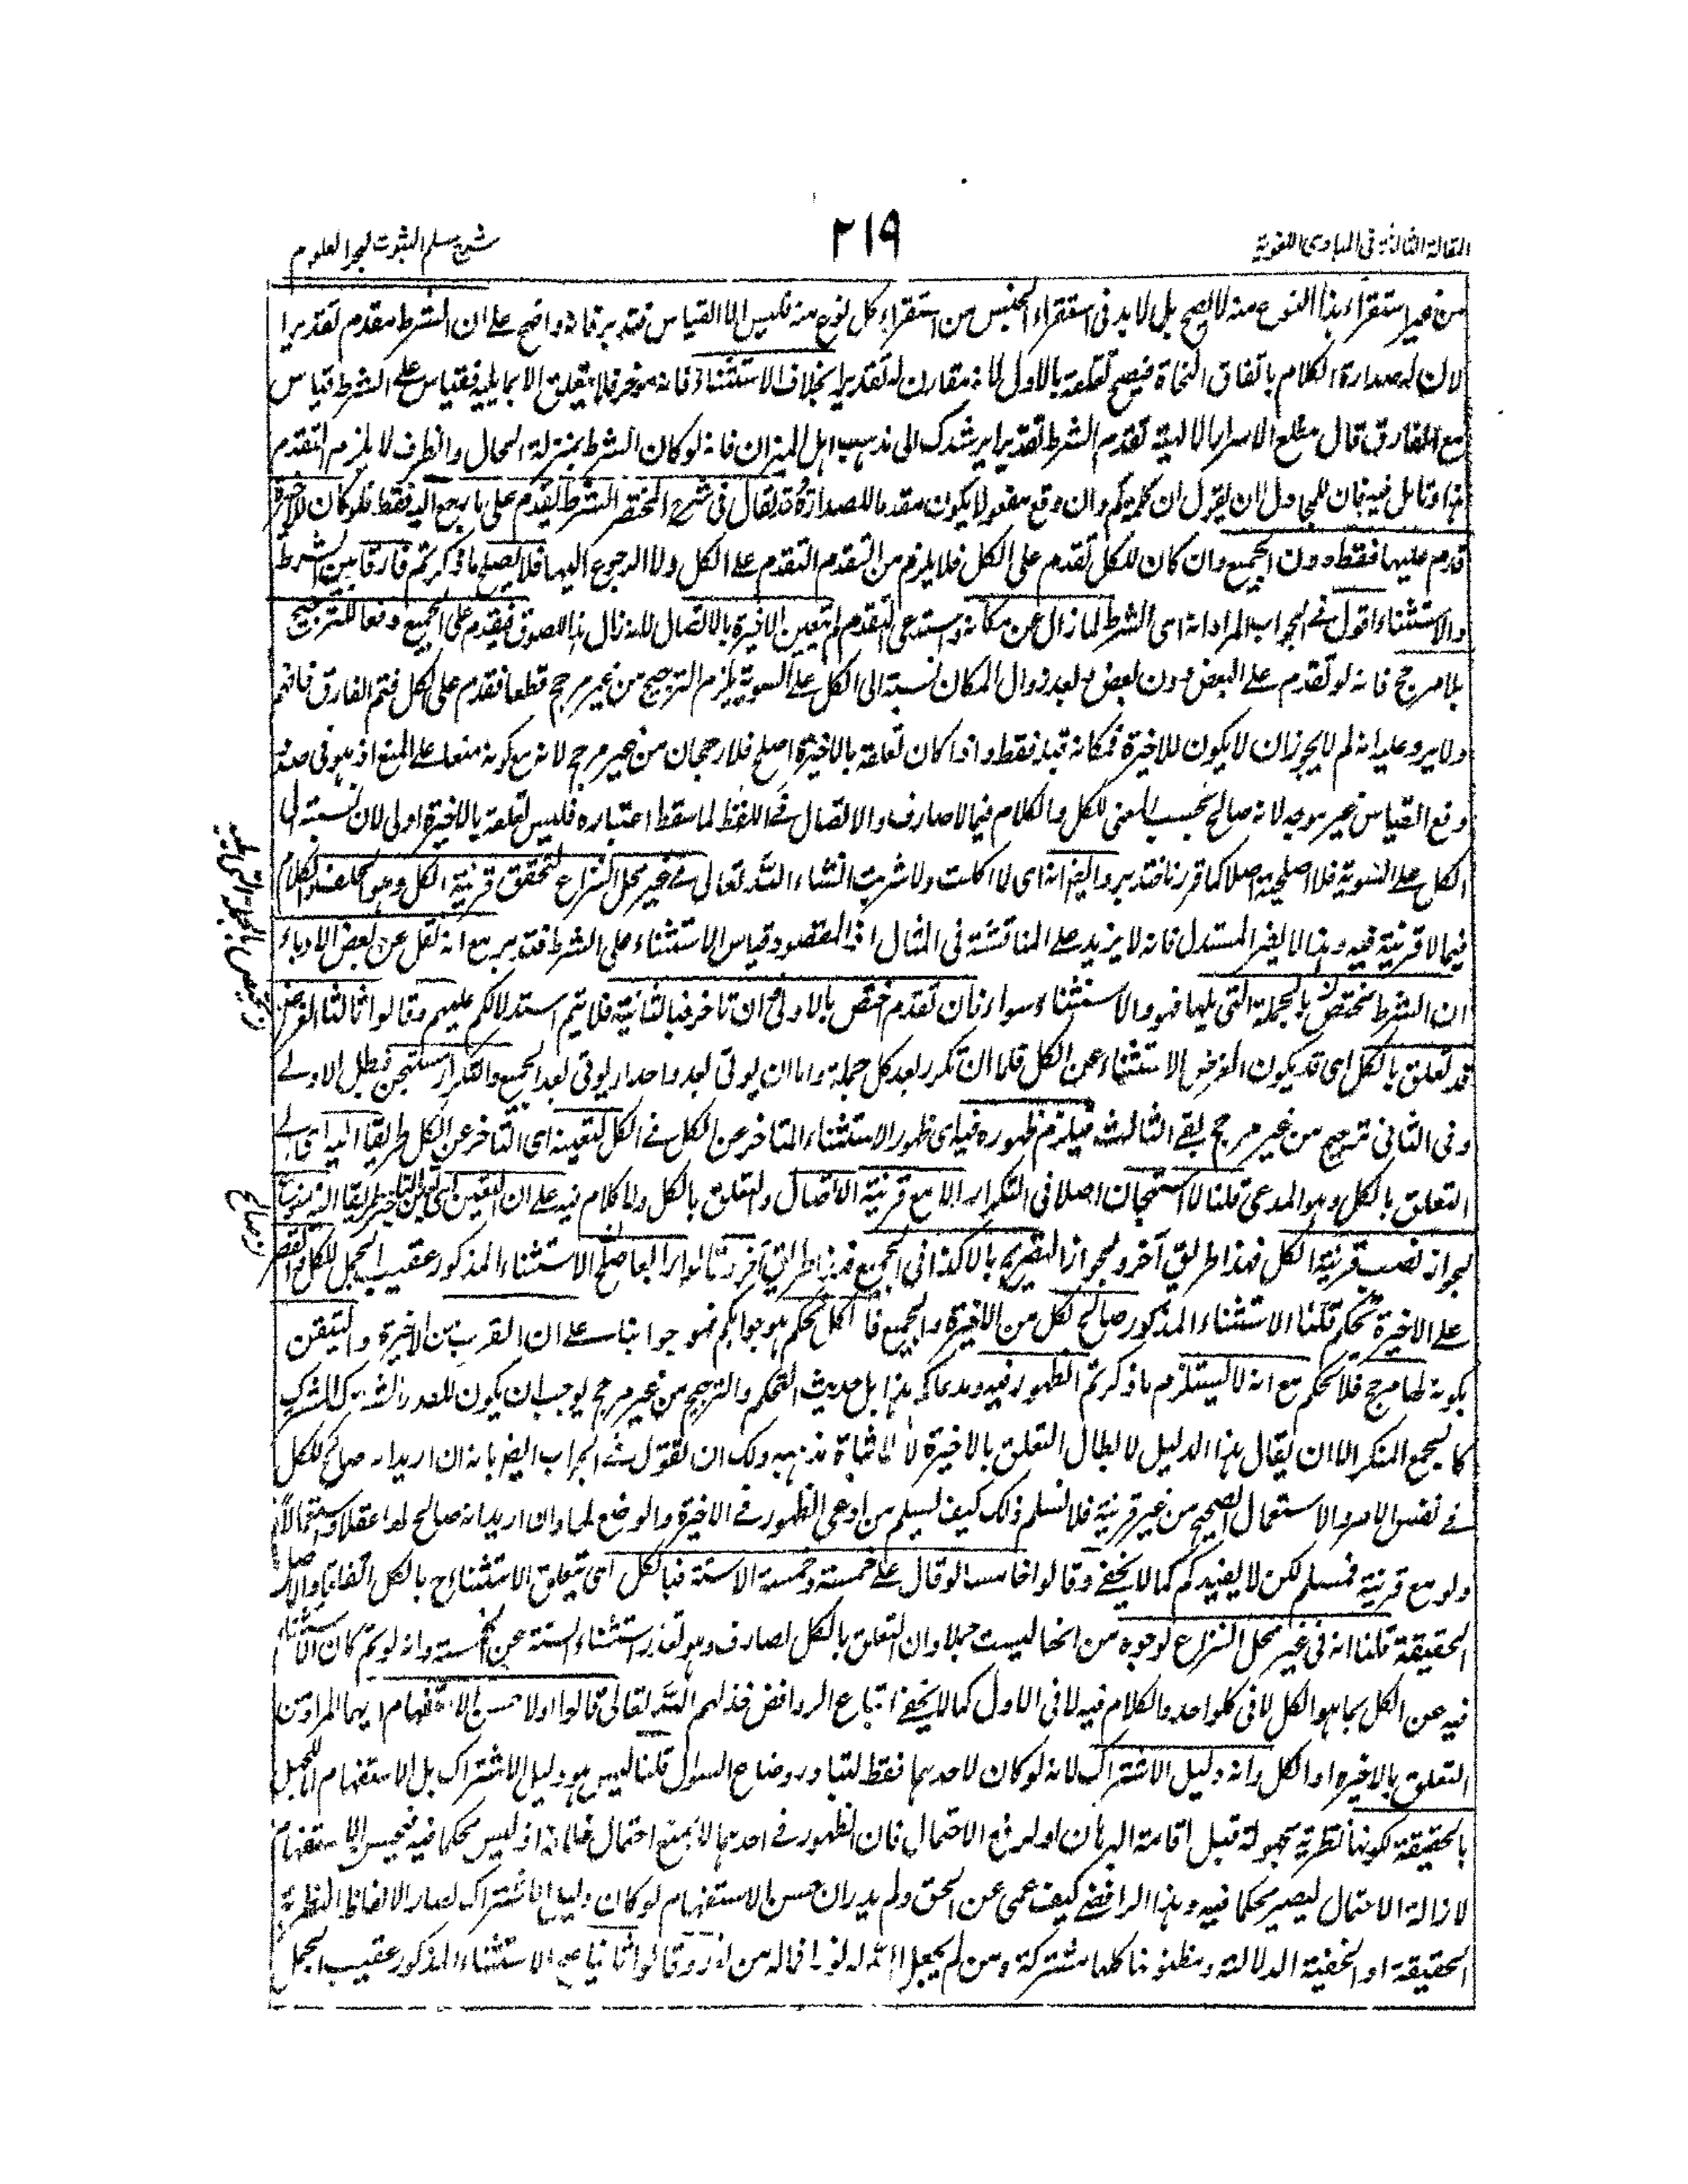 المقالة الثالثة فى المبادى اللغوية
٢١٩
شرح مسلم الثبوت لبحر العلوم
من غير استقراء هذا النوع منه لا يصح بل لا بد فى استقراء الجنس من استقراء كل نوع منه فليس الا القياس فتدبر فانه واضح على ان الشرط مقدم تقديرا
لان له صدارة الكلام باتفاق النحاة فيصح تعلقه بالاول لانه مقارن له تقديرا بخلاف الاستثناء فانه مؤخر فلا يتعلق الا بما يليه فقياس على الشرط قياس
مع الفارق قال مطلع الاسرار الالهية تقدم الشرط تقديرا يرشدك الى مذهب اهل الميزان فانه لو كان الشرط بمنزلة الحال والظرف لا يلزم التقدم
هذا وتامل فيه فان للمجادل ان يقول ان كلمة كم وان وقع مفعولا يكون مقدما للصدارة وقد يقال فى شرح المختصر الشرط يقدم على ما يرجع اليه فقط فلو كان للاخيرة
قدم عليها فقط دون الجميع وان كان للكل تقدم على الكل فلا يلزم من التقدم التقدم على الكل ولا الرجوع اليها فلا يصلح ما ذكرتم فارقا بين الشرط
والاستثناء اقول فى الجواب المراد انه اى الشرط لما زال عن مكانه واستدعى التقدم لم يتعين الاخيرة بالاتصال لانه زال هذا اللصوق فيقدم على الجميع دفعا للترجيح
بلا مرجح فانه لو تقدم على البعض دون بعض وبعد زوال المكان نسبته الى الكل على السوية يلزم الترجيح من غير مرجح قطعا فقدم على الكل فتم الفارق فافهم
ولا يرد عليه انه لم لا يجوز ان لا يكون للاخيرة فمكانه قبله فقط واذا كان تعلقه بالاخيرة اصلح فلا رجحان من غير مرجح لانه مع كونه منعا على المنع اذ هو فى صدد
دفع القياس غير موجه لانه صالح بحسب المعنى للكل والكلام فيما لا صارف والاتصال فى اللفظ لما سقط اعتباره فليس تعلقه بالاخيرة اولى لان نسبته الى
الكل على السوية فلا اصلحية اصلا كما قررنا فتدبر وايضا انه اى لا اكلت ولا شربت انشاء الله تعالى فى غير محل النزاع لتحقق قرينة الكل وهو الحلف والكلام
فيما لا قرينة فيه وهذا لا يضر المستدل فانه لا يزيد على المناقشة فى المثال اذ المقصود قياس الاستثناء على الشرط فتدبر مع انه نقل عن بعض الادباء
ان الشرط مختص بالجملة التى يليها فهو والاستثناء سواء فان تقدم اختص بالاولى وان تاخر فبالثانية فلا يتم استدلالكم عليهم وقالوا ثالثا الغرض
قد تعلق بالكل اى قد يكون الغرض الاستثناء عن الكل فاما ان تكرر بعد كل جملة واما ان يوتى بعد واحد او يوتى بعد الجميع والتكرار مستهجن فبطل الاولى
وفى الثانى ترجيح من غير مرجح بقى الثالث فيلزم ظهوره فيه اى ظهور الاستثناء المتاخر عن الكل فى الكل لتعينه اى التاخر عن الكل طريقا اليه اى الى
التعلق بالكل وهو المدعى قلنا لا استهجان اصلا فى التكرار الا مع قرينة الاتصال والتعلق بالكل ولا كلام فيه على ان التعين اى تعين التاخير طريقا اليه ممنوع
لجواز نصب قرينة الكل فهذا طريق آخر ولجواز التصريح بالا كذا فى الجميع فهذا طريق آخر وقالوا رابعا صلح الاستثناء المذكور عقيب الجمل للكل فالقصر
على الاخيرة تحكم قلنا الاستثناء المذكور صالح لكل من الاخيرة والجميع فالكل تحكم هو جوابكم فهو جوابنا على ان القرب من الاخيرة والتيقن
بكونه لها مرجح فلا تحكم مع انه لا يستلزم ما ذكرتم الظهور فيه ومدعاكم هذا بل حديث التحكم والترجيح من غير مرجح يوجب ان يكون للقدر المشترك
كالجمع المنكر الا ان يقال هذا الدليل لابطال التعلق بالاخيرة لا لاثبات مذهبه ولك ان تقول فى الجواب ايضا بانه ان اريد انه صالح للكل
فى نفس الامر والاستعمال الصحيح من غير قرينة فلا نسلم ذلك كيف يسلم من ادعى الظهور فى الاخيرة والوضع لها وان اريد انه صالح لها عقلا واستعمالا
ولو مع قرينة فمسلم لكن لا يفيدكم كما لا يخفى وقالوا خامسا لو قال على خمسة وخمسة الا ستة فبالكل اى يتعلق الاستثناء ح بالكل اتفاقا والاصل
الحقيقة قلنا انه فى غير محل النزاع لوجوه من انها ليست جملا وان التعلق بالكل لصارف وهو تعذر استثناء الستة عن الخمسة وانه لو تم كان الاستثناء
فيه عن الكل بما هو الكل لا فى كل واحد والكلام فيه لا فى الاول كما لا يخفى اتباع الروافض خذلهم الله تعالى قالوا اولا حسن الاستفهام ايهما المراد من
التعلق بالاخيرة او الكل وانه دليل الاشتراك لانه لو كان لاحدهما فقط لتبادر وضاع السوال قلنا ليس هو دليل الاشتراك بل الاستفهام للجهل
بالحقيقة لكونها نظرية مجهولة قبل اقامة البرهان او لرفع الاحتمال فان الظهور فى احدهما لا يمنع احتمال خلافه اذ ليس محكما فيه فيحسن الاستفهام
لازالة الاحتمال ليصير محكما فيه وهذا الرافضى كيف عمى عن الحق ولم يدر ان حسن الاستفهام لو كان دليل الاشتراك لصار الالفاظ النظرية
الحقيقة او الخفية الدلالة ومظنوناتها كلها مشتركة ومن لم يجعل الله له نورا فما له من نور وقالوا ثانيا صح الاستثناء المذكور عقيب الجمل